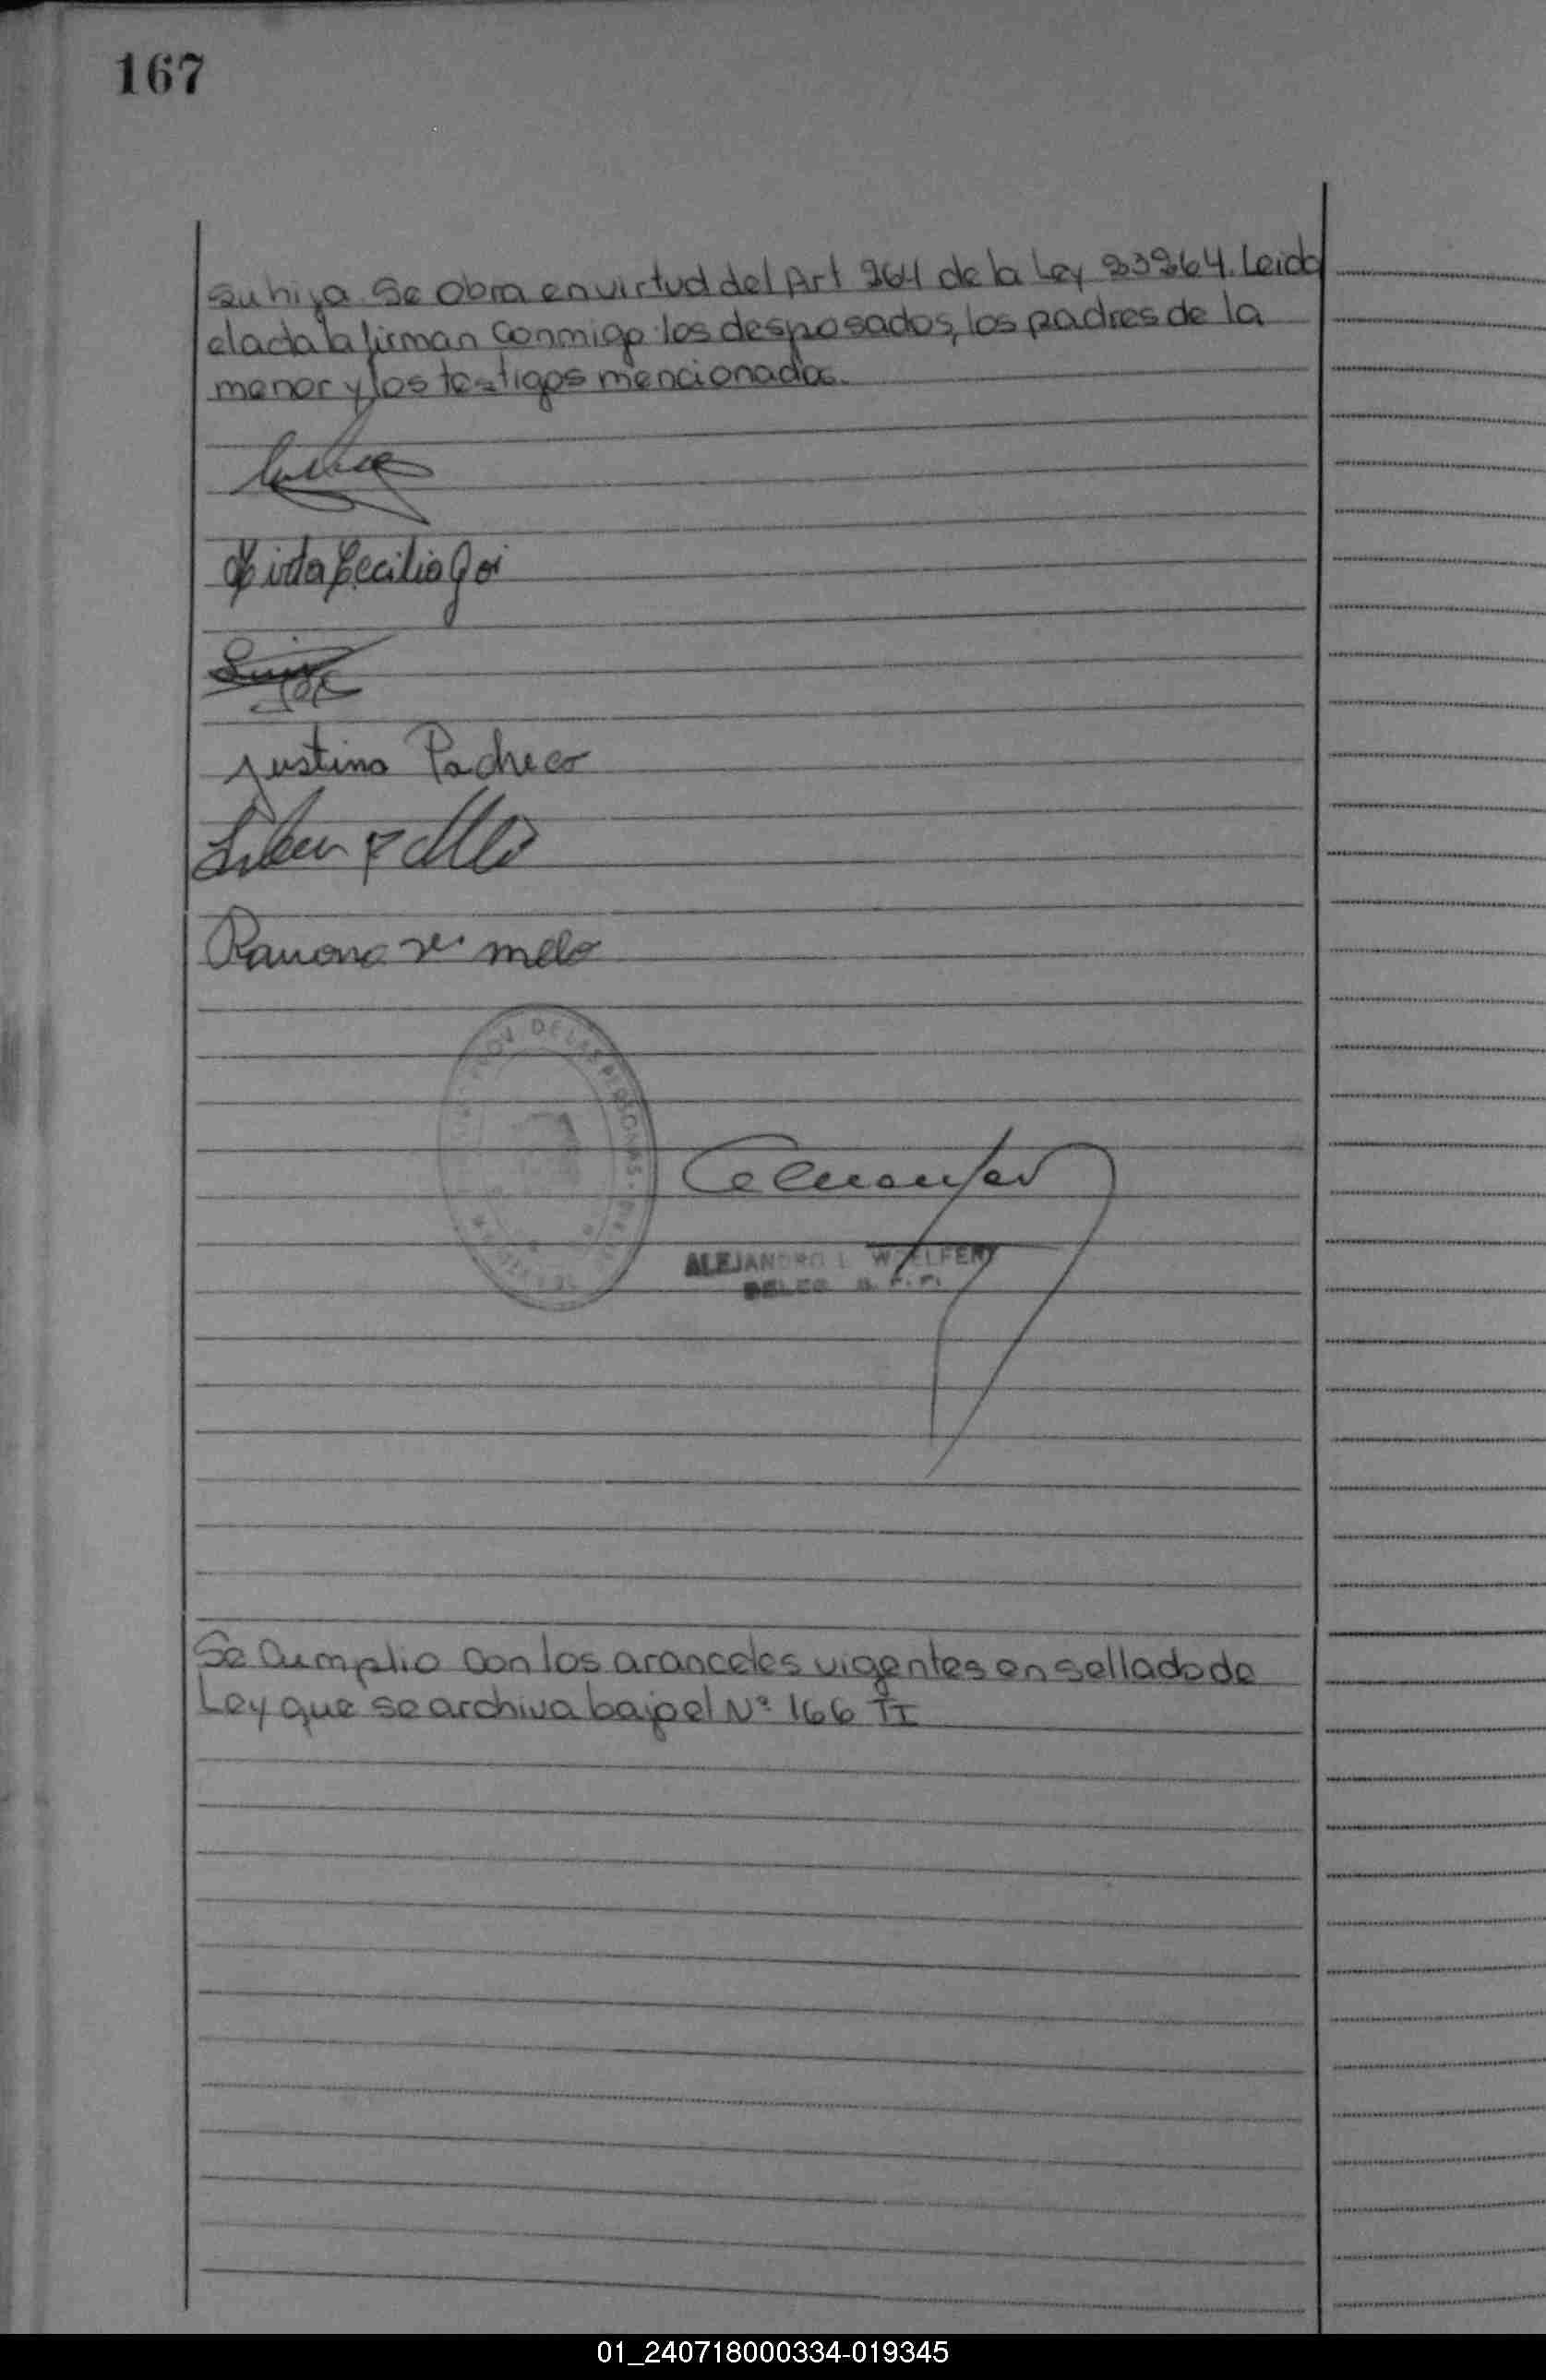 167
su hija. Se obra en virtud del Art 264 de la Ley 23264. Leida
el acta la firman conmigo los desposados, los padres de la
menor y los testigos mencionados.
Mirta Cecilia Goi
Justina Pacheco
Ramona melo
PROV. DE LAS PERSONAS
ALEJANDRO L. WOELFERT
Se cumplio con los aranceles vigentes en sellado de
Ley que se archiva bajo el Nº 166 TI
01_240718000334-019345